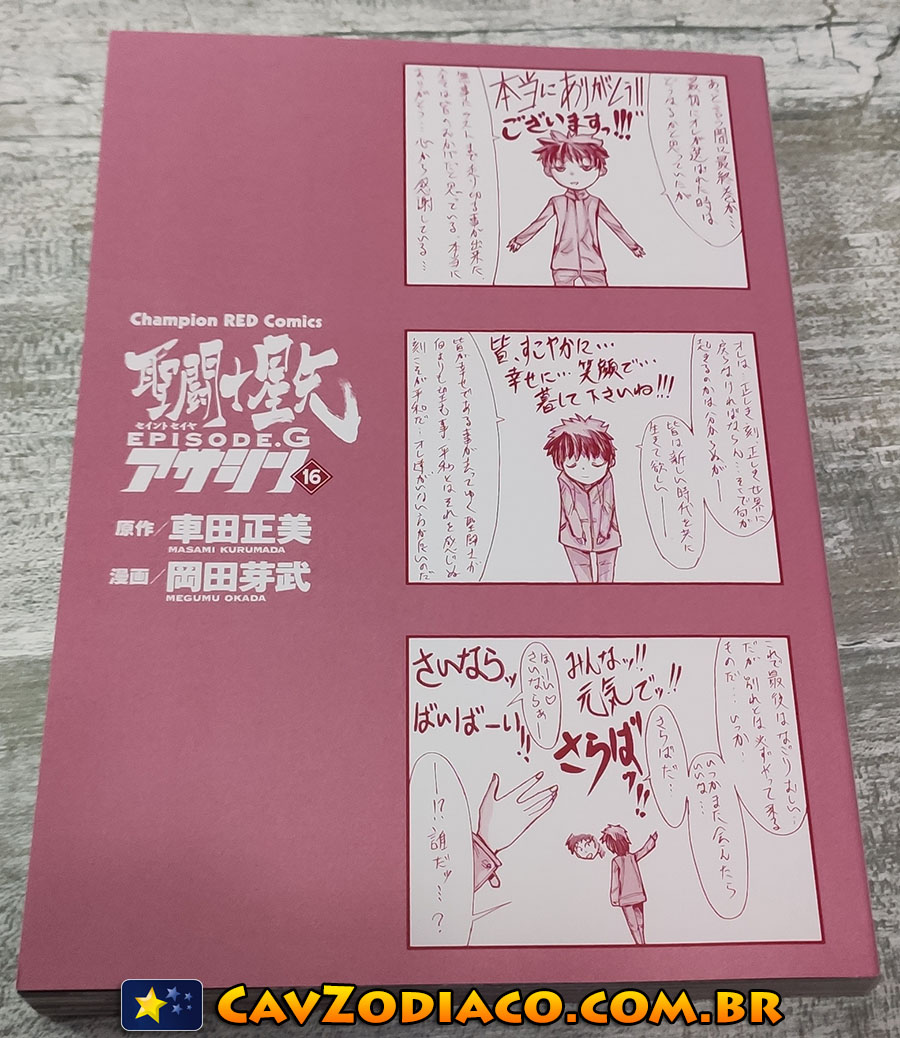 Champion RED Comics
聖闘士星矢
セイントセイヤ
EPISODE.G
アサシン 16
原作／車田正美
MASAMI KURUMADA
漫画／岡田芽武
MEGUMU OKADA
あっと言う間に最終巻か…
最初にオレが選ばれた時は
どうなるかと思っていたが
本当にありがとう!!
ございますっ!!!
無事にラストまで走り切る事が出来た、
今は皆のおかげだと思っている、本当に
ありがとう…心から感謝している…
オレは…正しき刻、正しき世界に
戻らなければならん…そこで何が
起きるのかは分からぬが──
皆は新しい時代を共に
生きて欲しい…
皆、すこやかに…
幸せに…笑顔で…
暮して下さいね!!!
皆が幸せである事が去ってゆく聖闘士が
何よりも望む事、平和とはそれを感じぬ
刻こそが平和だ…オレ達がいらなくていいのだ
これで最後はなごりおしい…
だが別れとは必ずやって来る
ものだ…いつか
いつかまた会えたら
いいな…
さらばだ…
みんなッ!!
元気でッ!!
さらばッ!!
はーい♡
さいならぁー
さいならッ
ばいばーい!!
──!?誰だッ…?
CavZodiaco.com.br